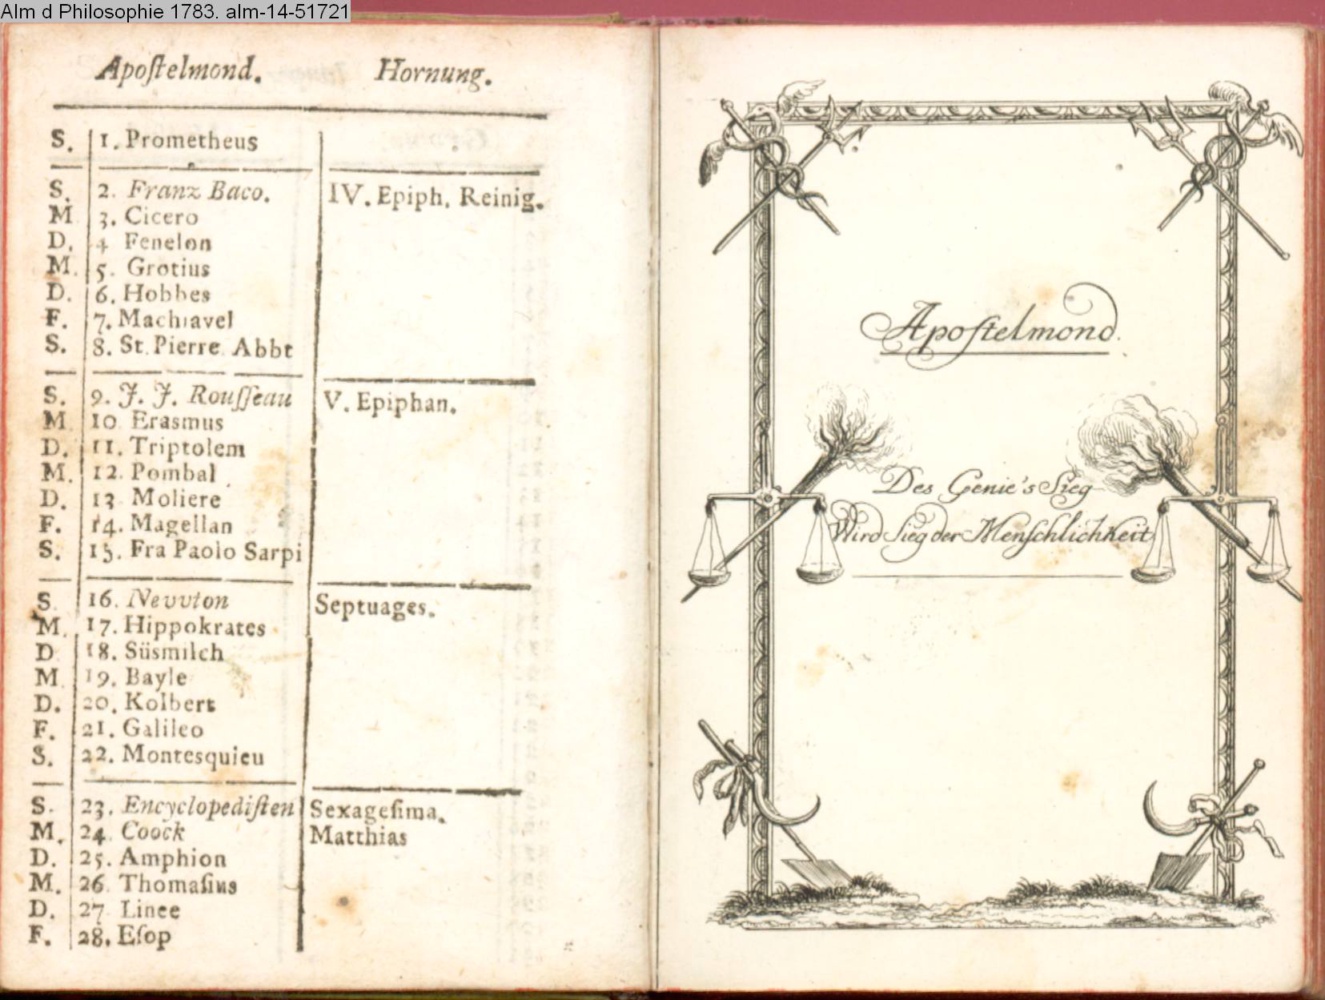 Alm d Philosophie 1783. alm-14-51721
Apoſtelmond. Hornung.
S. 1. Prometheus
S. 2. Franz Baco. IV. Epiph. Reinig.
M 3. Cicero
D. 4 Fenelon
M. 5. Grotius
D. 6. Hobbes
F. 7. Machiavel
S. 8. St. Pierre Abbt
S. 9. J. J. Rouſſeau V. Epiphan.
M. 10 Erasmus
D. 11. Triptolem
M. 12. Pombal
D. 13 Moliere
F. 14. Magellan
S. 15. Fra Paolo Sarpi
S. 16. Nevvton Septuages.
M. 17. Hippokrates
D 18. Süsmilch
M 19. Bayle
D. 20. Kolbert
F. 21. Galileo
S. 22. Montesquieu
S. 23. Encyclopediſten Sexageſima.
M. 24. Coock Matthias
D. 25. Amphion
M. 26. Thomaſius
D. 27 Linee
F. 28. Eſop
Apoſtelmond.
Des Genie's Sieg
Wird Sieg der Menſchlichkeit